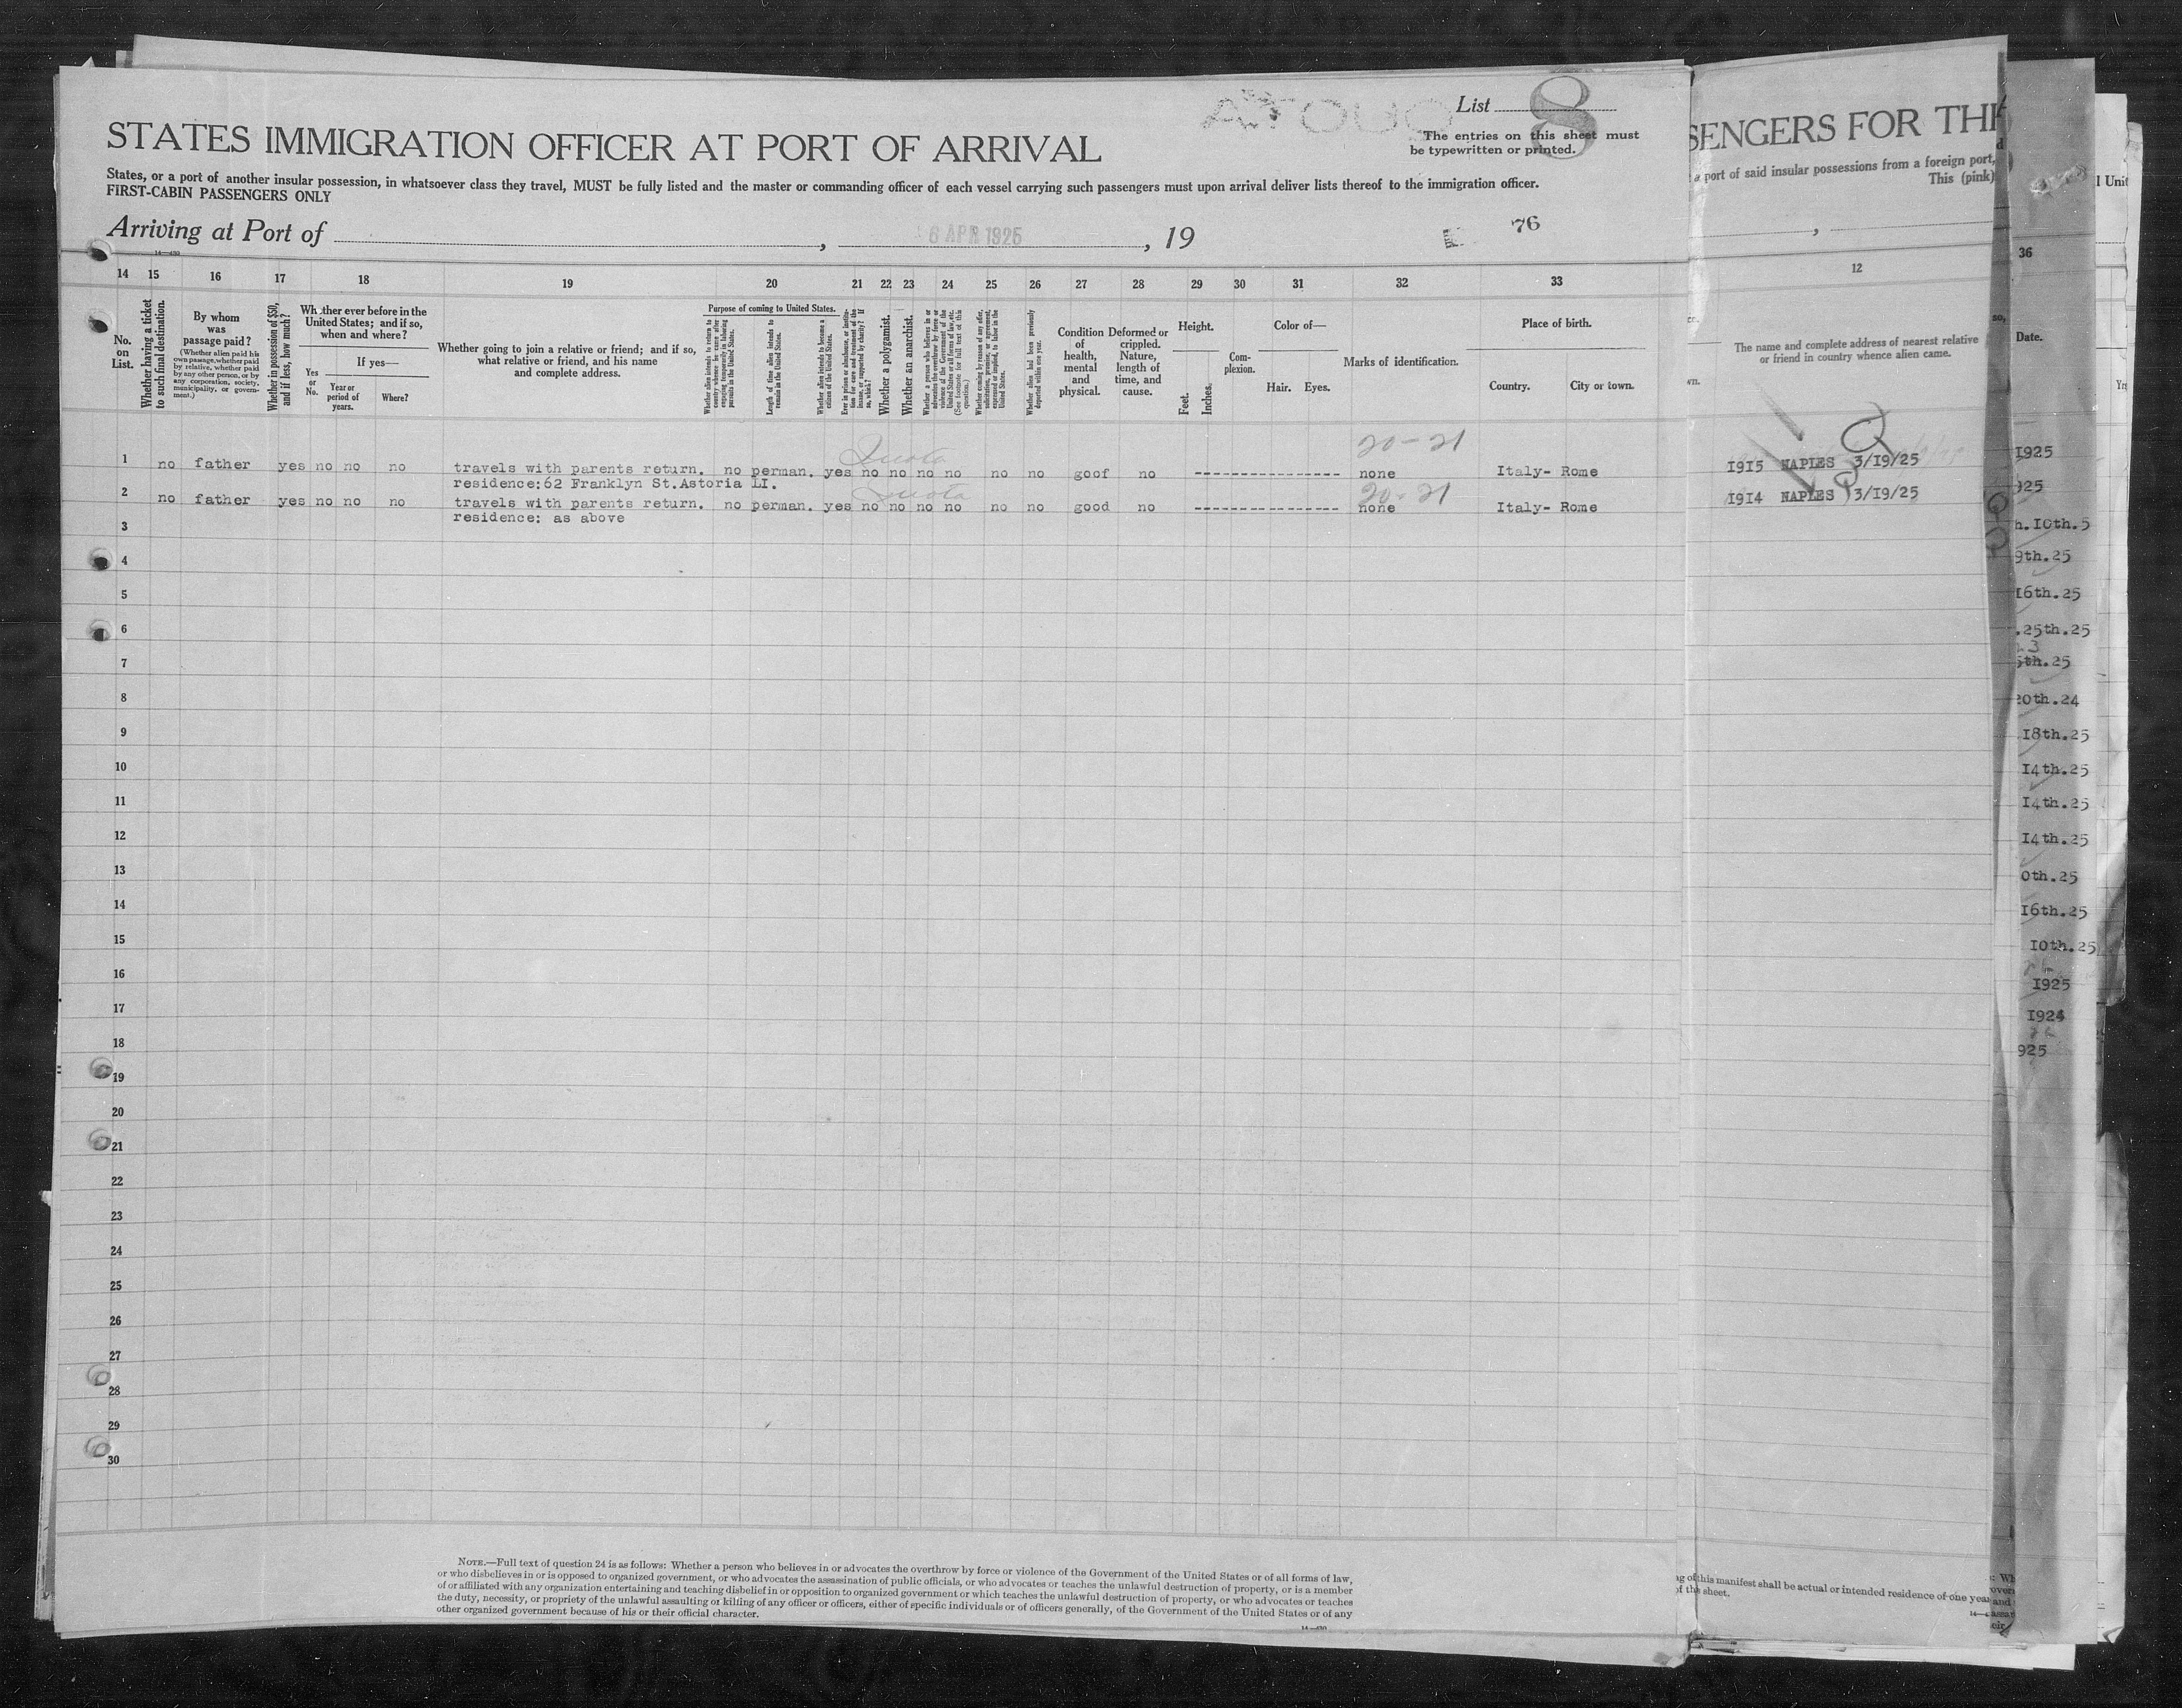 List 8
The entries on this sheet must
be typewritten or printed.
STATES IMMIGRATION OFFICER AT PORT OF ARRIVAL
States, or a port of another insular possession, in whatsoever class they travel, MUST be fully listed and the master or commanding officer of each vessel carrying such passengers must upon arrival deliver lists thereof to the immigration officer.
FIRST-CABIN PASSENGERS ONLY
Arriving at Port of , 6 APR 1925 , 19 76
14—430
14 15 16 17 18 19 20 21 22 23 24 25 26 27 28 29 30 31 32 33
No. on List.
Whether having a ticket to such final destination.
By whom was passage paid?
(Whether alien paid his own passage, whether paid by relative, whether paid by any other person, or by any corporation, society, municipality, or government.)
Whether in possession of $50, and if less, how much?
Whether ever before in the United States; and if so, when and where?
If yes—
Yes or No.
Year or period of years.
Where?
Whether going to join a relative or friend; and if so, what relative or friend, and his name and complete address.
Purpose of coming to United States.
Whether alien intends to return to country whence he came after engaging temporarily in laboring pursuits in the United States.
Length of time alien intends to remain in the United States.
Whether alien intends to become a citizen of the United States.
Ever in prison or almshouse, or institution for care and treatment of the insane, or supported by charity? If so, which?
Whether a polygamist.
Whether an anarchist.
Whether a person who believes in or advocates the overthrow by force or violence of the Government of the United States or all forms of law, etc. (See footnote for full text of this question.)
Whether coming by reason of any offer, solicitation, promise, or agreement, expressed or implied, to labor in the United States.
Whether alien had been previously deported within one year.
Condition of health, mental and physical.
Deformed or crippled. Nature, length of time, and cause.
Height.
Feet. Inches.
Complexion.
Color of—
Hair. Eyes.
Marks of identification.
Place of birth.
Country. City or town.
Quota 20-21
1 no father yes no no no travels with parents return. no perman. yes no no no no no no goof no ---------------- none Italy- Rome
residence:62 Franklyn St.Astoria LI.
Quota 20-21
2 no father yes no no no travels with parents return. no perman. yes no no no no no no good no ---------------- none Italy- Rome
residence: as above
3
4
5
6
7
8
9
10
11
12
13
14
15
16
17
18
19
20
21
22
23
24
25
26
27
28
29
30
NOTE.—Full text of question 24 is as follows: Whether a person who believes in or advocates the overthrow by force or violence of the Government of the United States or of all forms of law,
or who disbelieves in or is opposed to organized government, or who advocates the assassination of public officials, or who advocates or teaches the unlawful destruction of property, or is a member
of or affiliated with any organization entertaining and teaching disbelief in or opposition to organized government or which teaches the unlawful destruction of property, or who advocates or teaches
the duty, necessity, or propriety of the unlawful assaulting or killing of any officer or officers, either of specific individuals or of officers generally, of the Government of the United States or of any
other organized government because of his or their official character.
14—430
SENGERS FOR TH
a port of said insular possessions from a foreign port,
This (pink)
12
The name and complete address of nearest relative
or friend in country whence alien came.
1915 NAPLES 3/19/25
1914 NAPLES 3/19/25
g of this manifest shall be actual or intended residence of one year
of the sheet.
l Unit
36
Date.
1925
925
h.10th.5
9th.25
16th.25
.25th.25
5th.25
20th.24
18th.25
14th.25
14th.25
14th.25
0th.25
16th.25
10th.25
1925
1924
925